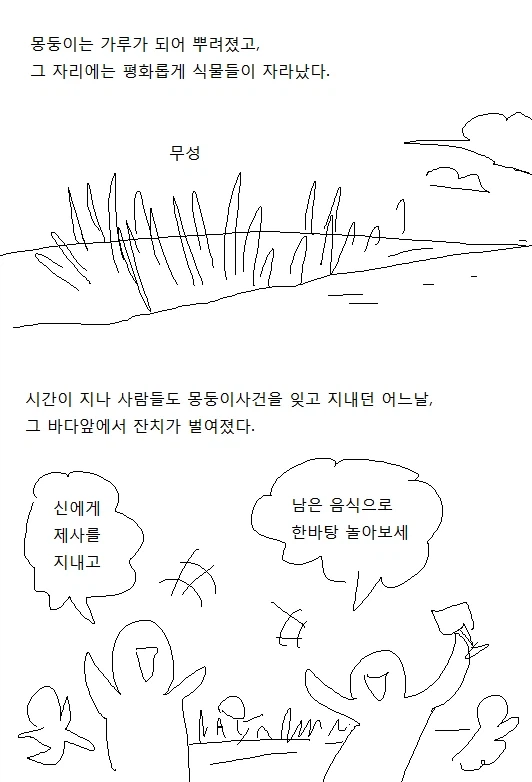 몽둥이는 가루가 되어 뿌려졌고,
그 자리에는 평화롭게 식물들이 자라났다.
무성
시간이 지나 사람들도 몽둥이사건을 잊고 지내던 어느날,
그 바다앞에서 잔치가 벌여졌다.
신에게
제사를
지내고
남은 음식으로
한바탕 놀아보세